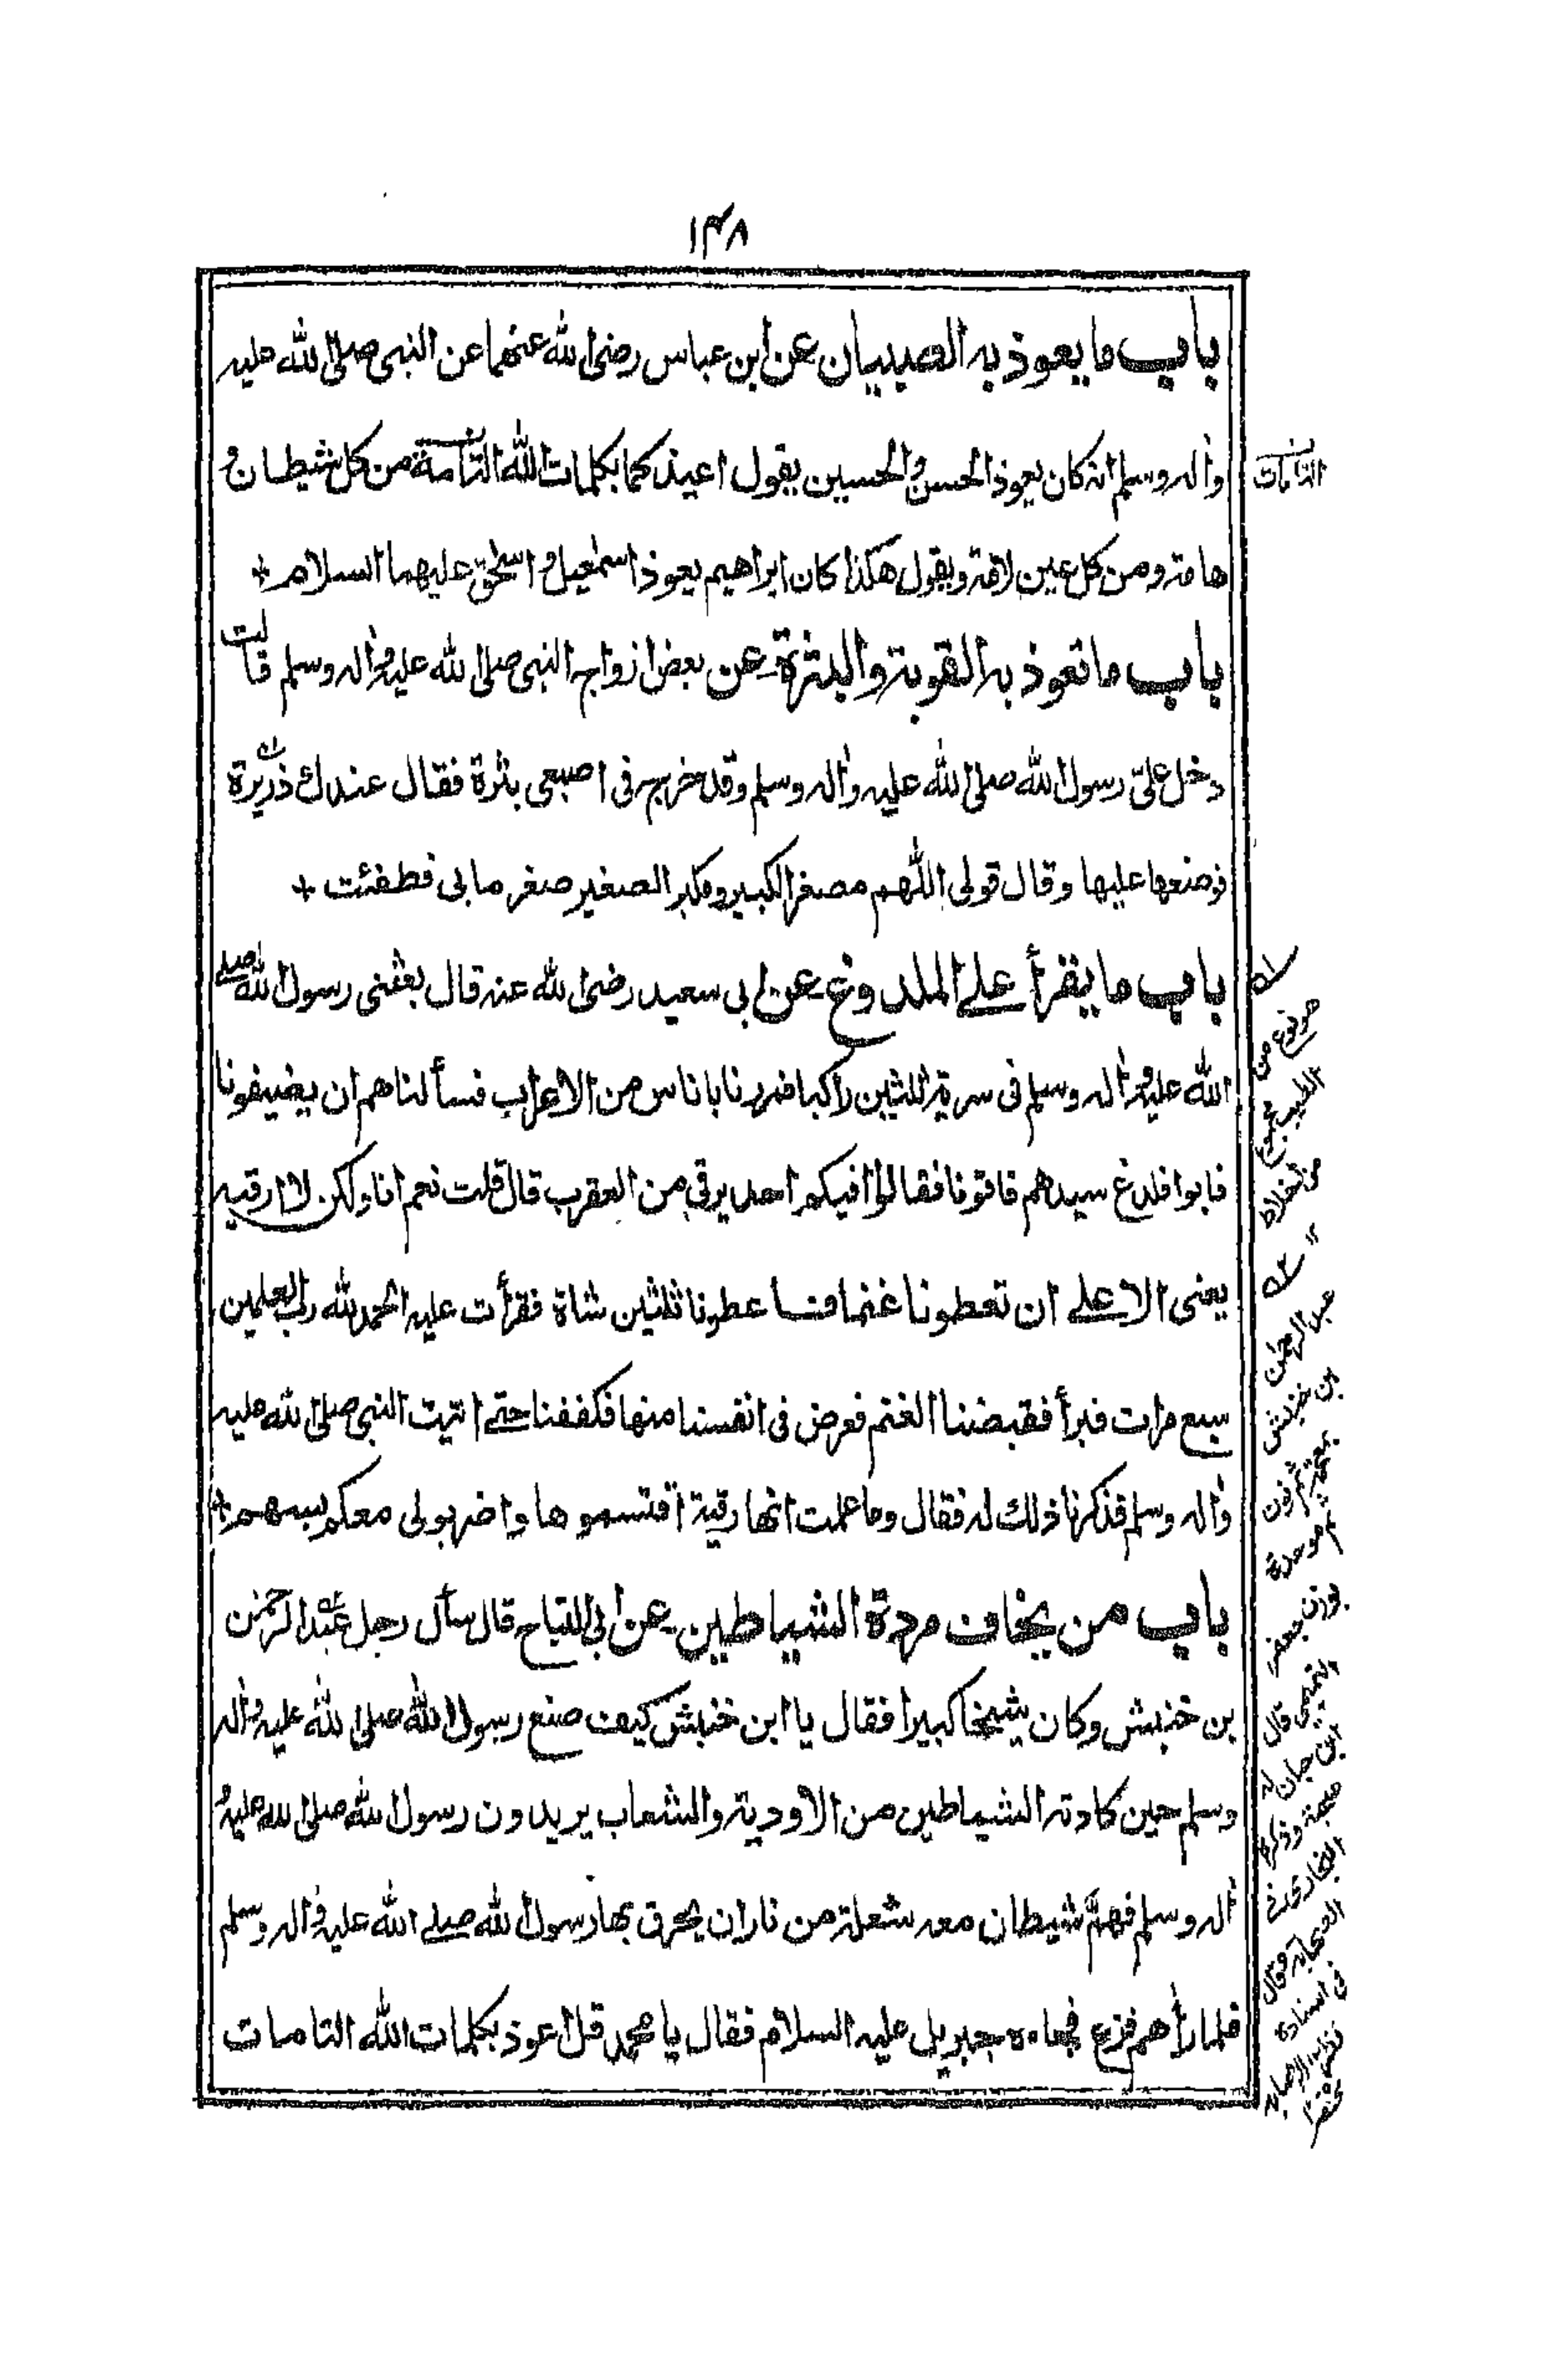 ۱۴۸
باب ما يعوذ به الصبيان عن ابن عباس رضى الله عنهما عن النبى صلى الله عليه
واله وسلم انه كان يعوذ الحسن والحسين يقول اعيذكما بكلمات الله التامة من كل شيطان و
هامة ومن كل عين لامة ويقول هكذا كان ابراهيم يعوذ اسمعيل و اسحق عليهما السلام +
باب ما تعوذ به القوبة والبثرة عن بعض ازواج النبى صلى الله عليه واله وسلم قالت
دخل علىّ رسول الله صلى الله عليه واله وسلم وقد خرج فى اصبعى بثرة فقال عندك ذريرة
فوضعها عليها وقال قولى اللهم مصغر الكبير ومكبر الصغير صغر ما بى فطفئت +
باب ما يقرأ على الملدوغ عن ابى سعيد رضى الله عنه قال بعثنى رسول الله صلى
الله عليه واله وسلم فى سرية ثلثين راكبا فمررنا باناس من الاعراب فسألناهم ان يضيفونا
فابوا فلدغ سيدهم فاتونا فقالوا افيكم احد يرقى من العقرب قال قلت نعم انا ولكن لا ارقيه
يعنى الاعلى ان تعطونا غنما فاعطونا ثلثين شاة فقرأت عليه الحمد لله رب العلمين
سبع مرات فبرأ فقبضنا الغنم فعرض فى انفسنا منها فكففنا حتى اتيت النبى صلى الله عليه
واله وسلم فذكرنا ذلك له فقال وما علمت انها رقية اقتسموها واضربولى معكم بسهم +
باب من يخاف مردة الشياطين عن ابى التياح قال سأل رجل عبد الرحمن
بن خنبش وكان شيخا كبيرا فقال يا ابن خنبش كيف صنع رسول الله صلى الله عليه واله
وسلم حين كادته الشياطين من الاودية والشعاب يريدون رسول الله صلى الله عليه و
اله وسلم فهمّ شيطان معه شعلة من نار ان يحرق بها رسول الله صلى الله عليه واله وسلم
فلما رأهم فزع فجاءه جبريل عليه السلام فقال يا محمد قل اعوذ بكلمات الله التامات
التامات
عبد الرحمن
بن خنبش
بمعجمة ثم نون
ثم موحدة
بوزن جعفر
التميمى قال
ابن حبان له
صحبة وذكره
البخارى فى
الصحابة وقال
فى اسناده
نظر